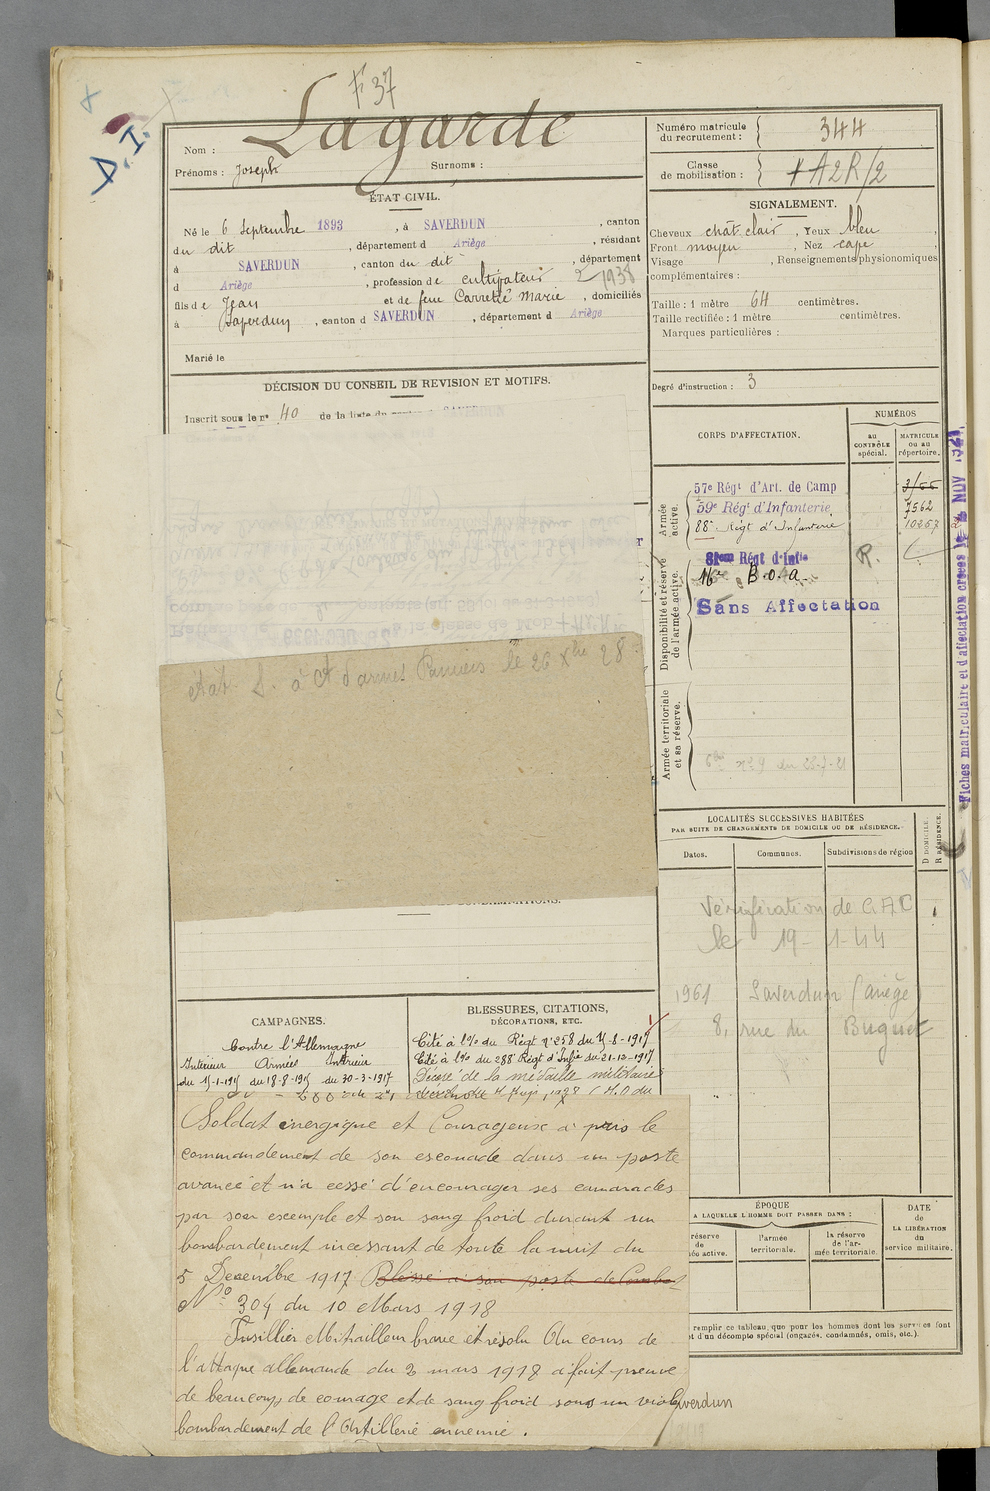 F 37
D. I.
Nom : Lagarde
Prénoms : Joseph Surnoms :
Numéro matricule du recrutement : 344
Classe de mobilisation : + A2R/2
ÉTAT CIVIL.
Né le 6 Septembre 1893, à SAVERDUN, canton
du dit, département d Ariège, résidant
à SAVERDUN, canton du dit, département
d Ariège, profession de cultivateur
2 1938
fils de Jean et de feue Carretié Marie, domiciliés
à Saverdun, canton d SAVERDUN, département d Ariège
Marié le
SIGNALEMENT.
Cheveux chât clair, Yeux bleu,
Front moyen, Nez cave,
Visage , Renseignements physionomiques
complémentaires :
Taille : 1 mètre 64 centimètres.
Taille rectifiée : 1 mètre centimètres.
Marques particulières :
Degré d'instruction : 3
DÉCISION DU CONSEIL DE REVISION ET MOTIFS.
Inscrit sous le n° 40 de la liste du canton d SAVERDUN
CORPS D'AFFECTATION.
NUMÉROS
AU CONTRÔLE spécial.
MATRICULE ou au répertoire.
Armée active.
57e Régt d'Art. de Camp
59e Régt d'Infanterie 7562
88e Régt d'Infanterie 10257
Disponibilité et réserve de l'armée active.
81eme Régt d'Infie R.
16e B.o.a.
Sans Affectation
Armée territoriale et sa réserve.
Fiches matriculaire et d'affectation créées le NOV 1921
état S. à Ct d'armes Pamiers le 26 Xbre 28
LOCALITÉS SUCCESSIVES HABITÉES
PAR SUITE DE CHANGEMENTS DE DOMICILE OU DE RÉSIDENCE.
Dates. Communes. Subdivisions de région
D DOMICILE.
R RÉSIDENCE.
Vérification de CAD
le 19-1-44
1961 Saverdun (Ariège)
8, rue du Buguet
CAMPAGNES.
Contre l'Allemagne
Intérieur Armées Intérieur
BLESSURES, CITATIONS,
DÉCORATIONS, ETC.
Cité à l'o/ du Régt n°258 du 15-8-1917
Cité à l'o/ du 288e Régt d'Infie du 21-12-1917
Décoré de la médaille militaire
Soldat énergique et Courageux a pris le
commandement de son escouade dans un poste
avancé et n'a cessé d'encourager ses camarades
par son exemple et son sang froid durant un
bombardement incessant de toute la nuit du
5 Décembre 1917 Blessé à son poste de Combat
N° 304 du 10 Mars 1918
Fusillier Mitrailleur brave et résolu Au cours de
l'attaque allemande du 2 mars 1918 a fait preuve
de beaucoup de courage et de sang froid sous un violent
bombardement de l'Artillerie ennemie.
ÉPOQUE
A LAQUELLE L'HOMME DOIT PASSER DANS :
l'armée territoriale.
la réserve de l'armée territoriale.
DATE de LA LIBÉRATION du service militaire.
remplir ce tableau que pour les hommes dont les services font
d'un décompte spécial (engagés, condamnés, omis, etc.).